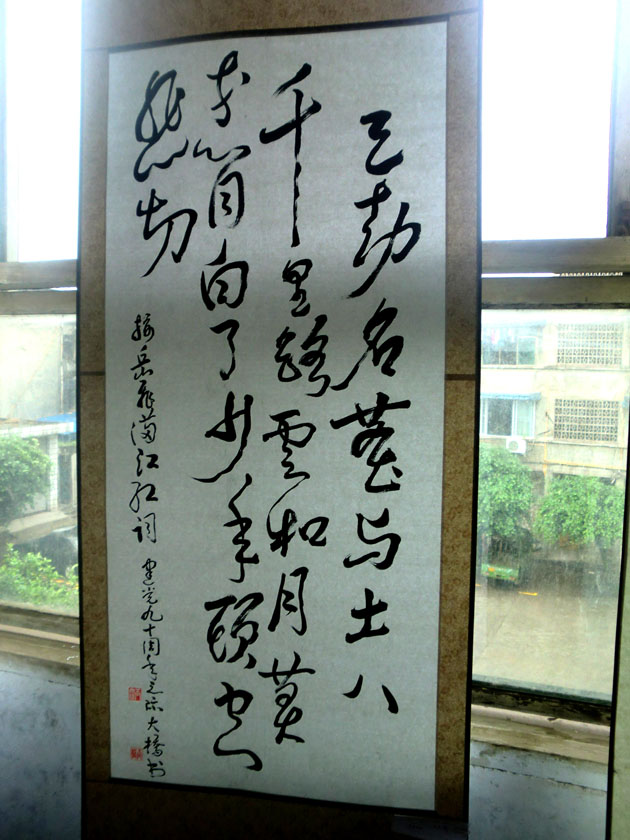 三十功名塵与土八
千里路雲和月莫
等閒白了少年頭空
悲切
岳飛滿江红词
建党九十周年之际大橋书